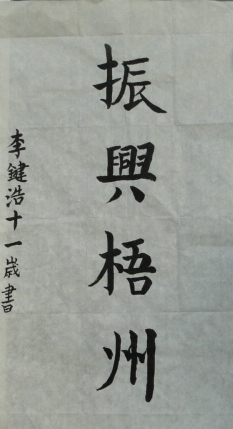 振興梧州
李鍵浩十一歲書